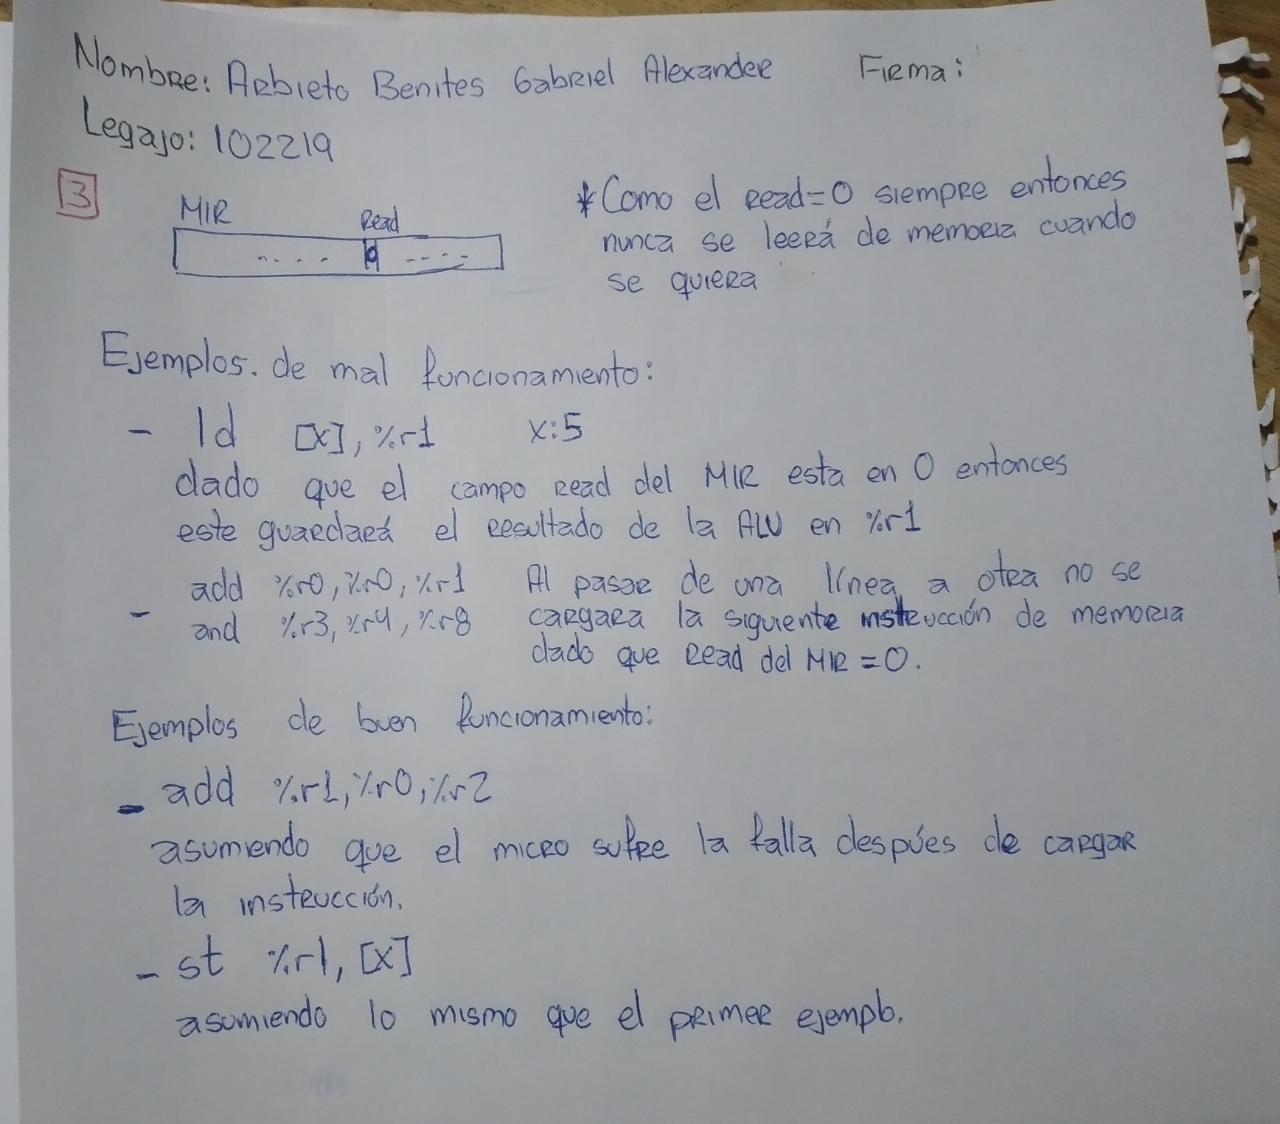 Nombre: Arbieto Benites Gabriel Alexander Firma:
Legajo: 102219
3
MIR Read
.... 0 ----
* Como el read=0 siempre entonces
nunca se leerá de memoria cuando
se quiera
Ejemplos. de mal funcionamiento:
- ld [x], %r1 x:5
dado que el campo read del MIR esta en 0 entonces
este guardará el resultado de la ALU en %r1
- add %r0, %r0, %r1
and %r3, %r4, %r8
Al pasar de una línea a otra no se
cargara la siguiente instrucción de memoria
dado que Read del MIR = 0.
Ejemplos de buen funcionamiento:
- add %r1, %r0, %r2
asumiendo que el micro sufre la falla despúes de cargar
la instrucción.
- st %r1, [x]
asumiendo lo mismo que el primer ejemplo.